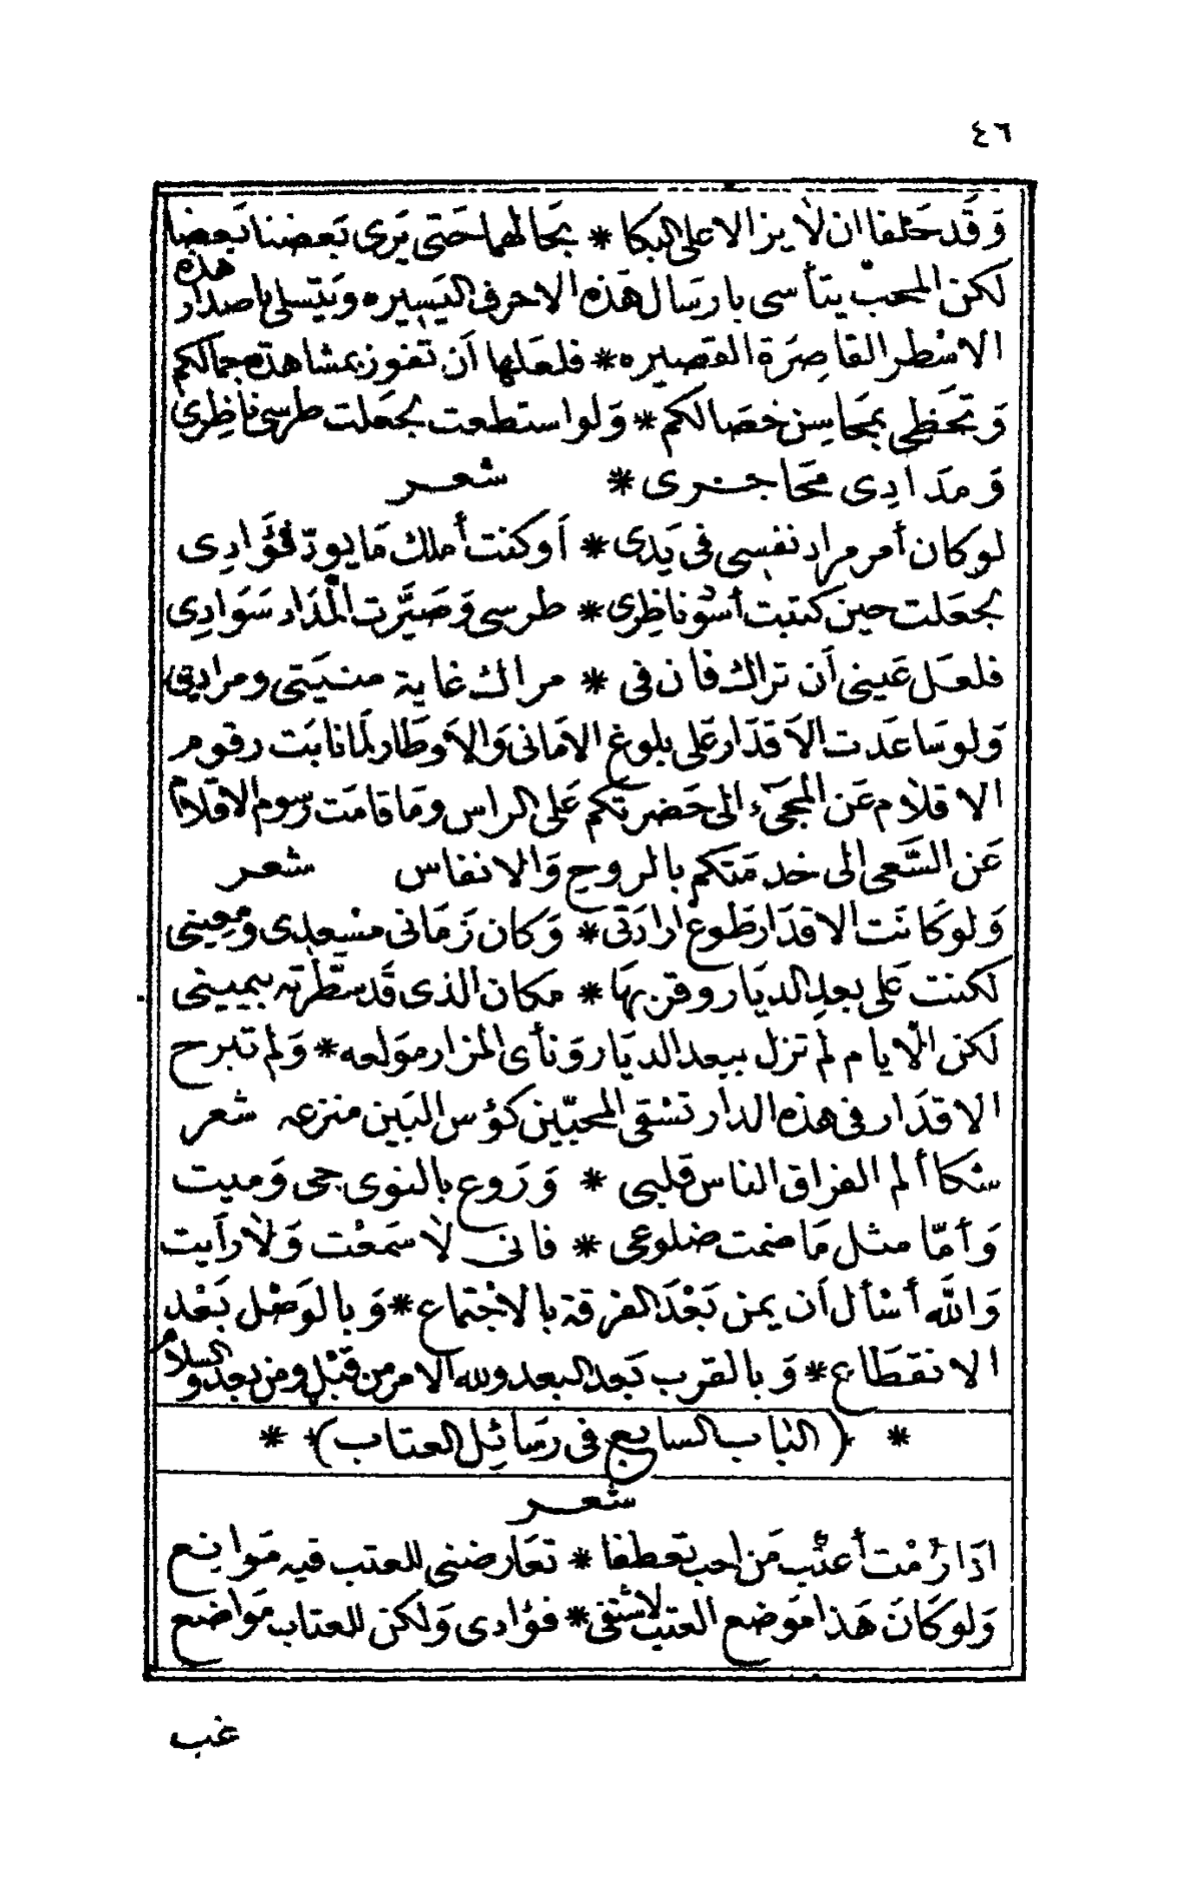 ٤٦
وَقَد حَلفا ان لاٰ يزالا على البكا * بحَالهما حَتى يَرى بَعضنا بَعضا
لكن المحبّ يتأسى بارسَال هَذه الاحرف اليَسيره وَيَتسلى باصدار هذه
الاسْطر القاصِرَة القصيره * فلعَلها أن تَفوز بمشاهَدة جمالكم
وَتحَظى بمحَاسِن خصَالكم * وَلو استطعت لجعَلت طرسى ناظِرى
وَمدَادِى محَاجـرى * شعـر
لوكان أمر مراد نفسى فى يَدى * أوكنت أملك مَا يودّ فؤَادِى
لجعَلت حين كتبت أسْود ناظِرى * طرسى وَصَيَّرت المدَاد سَوَادِى
فلعَـل عَينى أن تراك فان فى * مراك غاية منـيَتى ومرادى
وَلو سَاعَدت الاَقدَار عَلى بلوغ الامَانى وَالاَوطَار لمَا نابَت رقوم
الاقلاٰم عَن المجَىء الى حَضرتكم عَلى الراس ومَا قامَت رسوم الاقلام
عَن السَّعى الى خدمَتكم بالروح وَالانفاس شعـر
وَلوكَانَت الاقدَار طَوعْ ارادَتى * وَكان زَمَانى مسْعِدِى ومِعينى
لكنت عَلى بعدِ الديَار وقربهَا * مكان الذى قَد سَطَّرَته يمينى
لكن الاّيام لم تزل ببعد الديَار وَنأى المزار موَلعه * وَلم تبرح
الاقدَار فى هذه الدار تسْقى المحبّين كؤس البَين منزعه شعر
شكا ألم الفراق الناس قلبى * وَرَوع بالنوى حى وَميت
وَأمّا مثـل مَا ضمت ضلوعى * فانى لاٰ سَمعْت وَلاٰ رأيت
وَاللّه أسْأل أن يمن بَعْدَ الفرقة بالاجْتماع * وَبالوَصْل بَعْد
الانقطَاع * وَبالقرب بَعد البعد ولله الامر من قَبْل ومن بعد والسلام
* ﴿الباب السابع فى رسَائل العتاب﴾ *
شعـر
اذا رُمْت أعتب مَن احب تعَطفا * تعَارضنى للعتب فيه مَوانع
وَلوكَانَ هَذا موَضع العتب لاشتفى * فؤادى وَلكن للعتاب موَاضع
عب